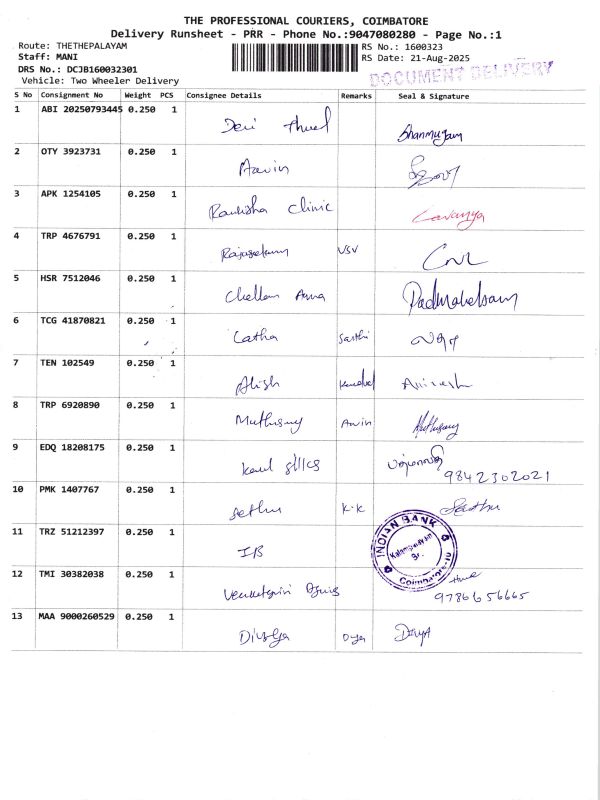 THE PROFESSIONAL COURIERS, COIMBATORE
Delivery Runsheet - PRR - Phone No.:9047080280 - Page No.:1
Route: THETHEPALAYAM
RS No.: 1600323
Staff: MANI
RS Date: 21-Aug-2025
DRS No.: DCJB160032301
DOCUMENT DELIVERY
Vehicle: Two Wheeler Delivery
S No Consignment No Weight PCS Consignee Details Remarks Seal & Signature
1 ABI 20250793445 0.250 1 Shanmugam
2 OTY 3923731 0.250 1 Aavin
3 APK 1254105 0.250 1 Clinic Lavanya
4 TRP 4676791 0.250 1 Rajasekum VSV
5 HSR 7512046 0.250 1 Chellam Amma
6 TCG 41870821 0.250 1 Latha Sasthi
7 TEN 102549 0.250 1
8 TRP 6920890 0.250 1 Muthusamy Muthusamy
9 EDQ 18208175 0.250 1 9842302021
10 PMK 1407767 0.250 1 Sethu K.K
11 TRZ 51212397 0.250 1 IB INDIAN BANK
Br.
Coimbatore
12 TMI 30382038 0.250 1
9786656665
13 MAA 9000260529 0.250 1 Divya Divya